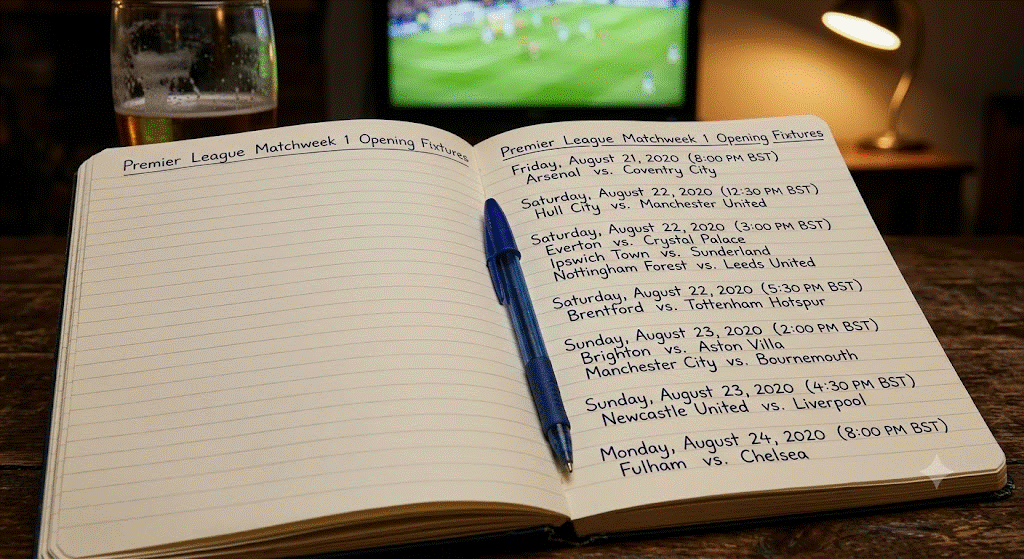 Premier League Matchweek 1 Opening Fixtures
Premier League Matchweek 1 Opening Fixtures
Friday, August 21, 2020 (8:00 PM BST)
Arsenal vs. Coventry City
Saturday, August 22, 2020 (12:30 PM BST)
Hull City vs. Manchester United
Saturday, August 22, 2020 (3:00 PM BST)
Everton vs. Crystal Palace
Ipswich Town vs. Sunderland
Nottingham Forest vs. Leeds United
Saturday, August 22, 2020 (5:30 PM BST)
Brentford vs. Tottenham Hotspur
Sunday, August 23, 2020 (2:00 PM BST)
Brighton vs. Aston Villa
Manchester City vs. Bournemouth
Sunday, August 23, 2020 (4:30 PM BST)
Newcastle United vs. Liverpool
Monday, August 24, 2020 (8:00 PM BST)
Fulham vs. Chelsea